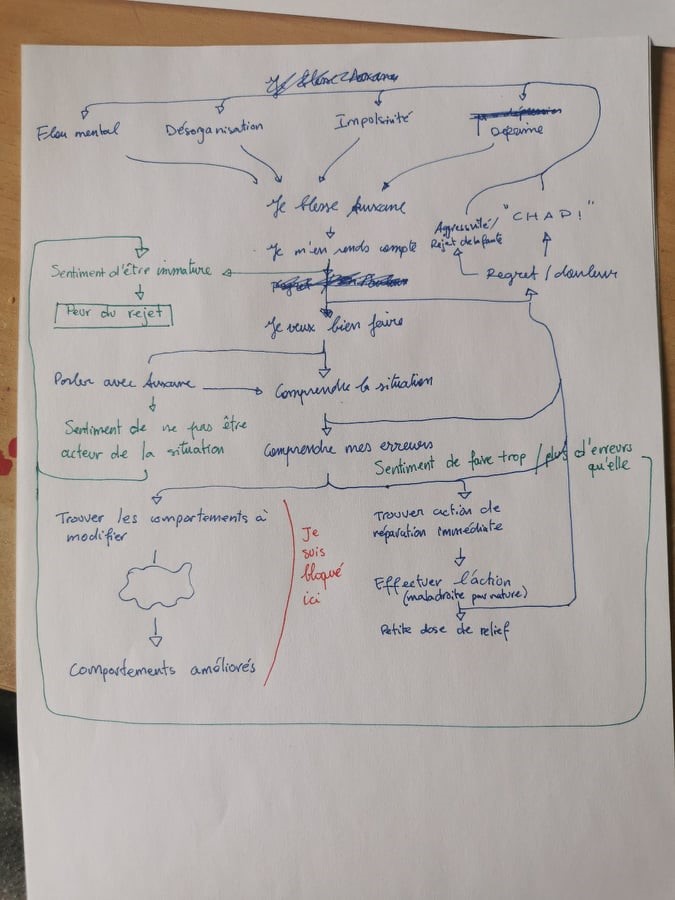 Flou mental
Désorganisation
Impulsivité
Dopamine
Je blesse Auxane
"CHAP!"
Aggressivité/
Rejet de la faute
Je m'en rends compte
Sentiment d'être immature
Regret / douleur
Peur du rejet
Je veux bien faire
Parler avec Auxane
Comprendre la situation
Sentiment de ne pas être
acteur de la situation
Comprendre mes erreurs
Sentiment de faire trop / plus d'erreurs
qu'elle
Trouver les comportements à
modifier
Je
suis
bloqué
ici
Trouver action de
réparation immédiate
Effectuer l'action
(maladroite par nature)
Petite dose de relief
Comportements améliorés